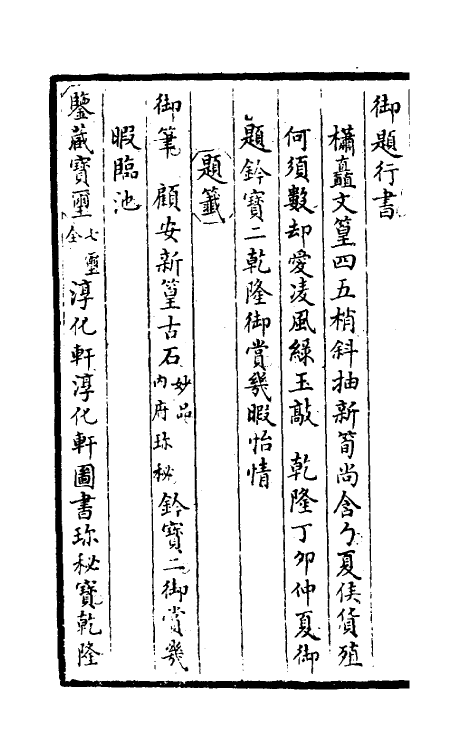 御題行書
櫹矗文篁四五梢斜抽新筍尚含勹夏侯貨殖
何須數却愛凌風綠玉敲　乾隆丁卯仲夏御
題鈐寶二乾隆御賞幾暇怡情
題籤
御筆　顧安新篁古石妙品内府珍秘鈐寶二御賞幾
暇臨池
鑒藏寶璽七璽全淳化軒淳化軒圖書珍秘寶乾隆